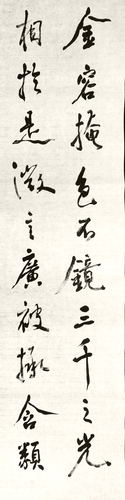 金容掩色不鏡三千之光
相於是微言廣被拯含類